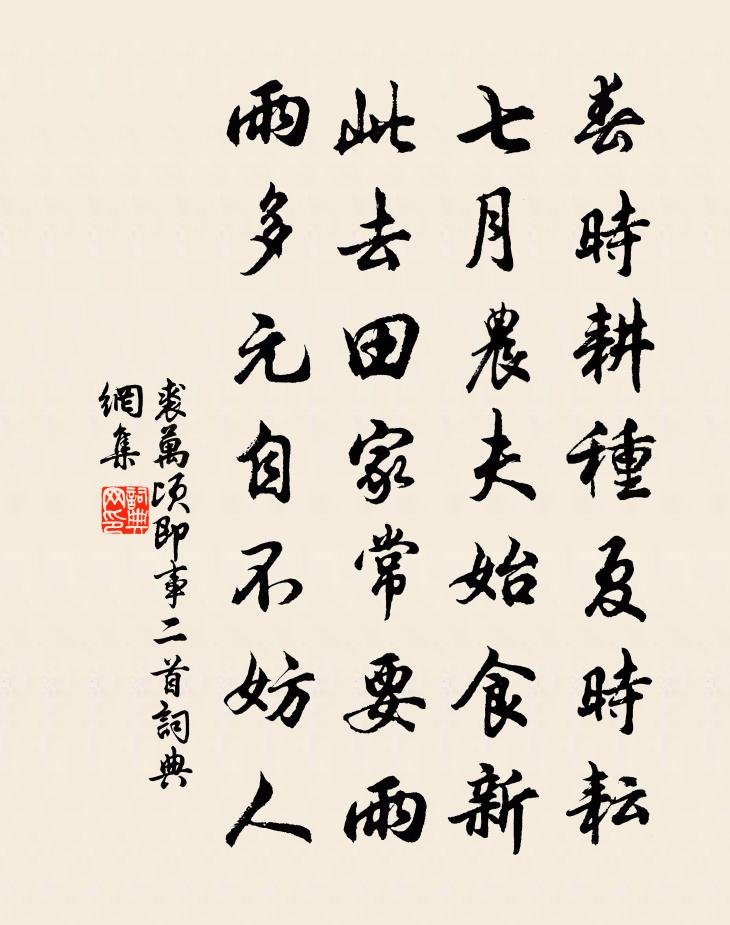 春時耕種夏時耘
七月農夫始食新
此去田家常要雨
雨多元自不妨人
裘萬頃即事二首詞典
網集
詞典
网印